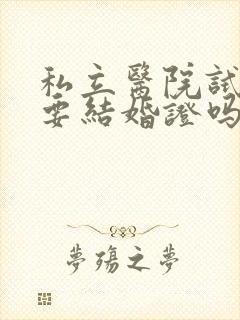 私立醫院試
要結婚證吗
夢殤之夢